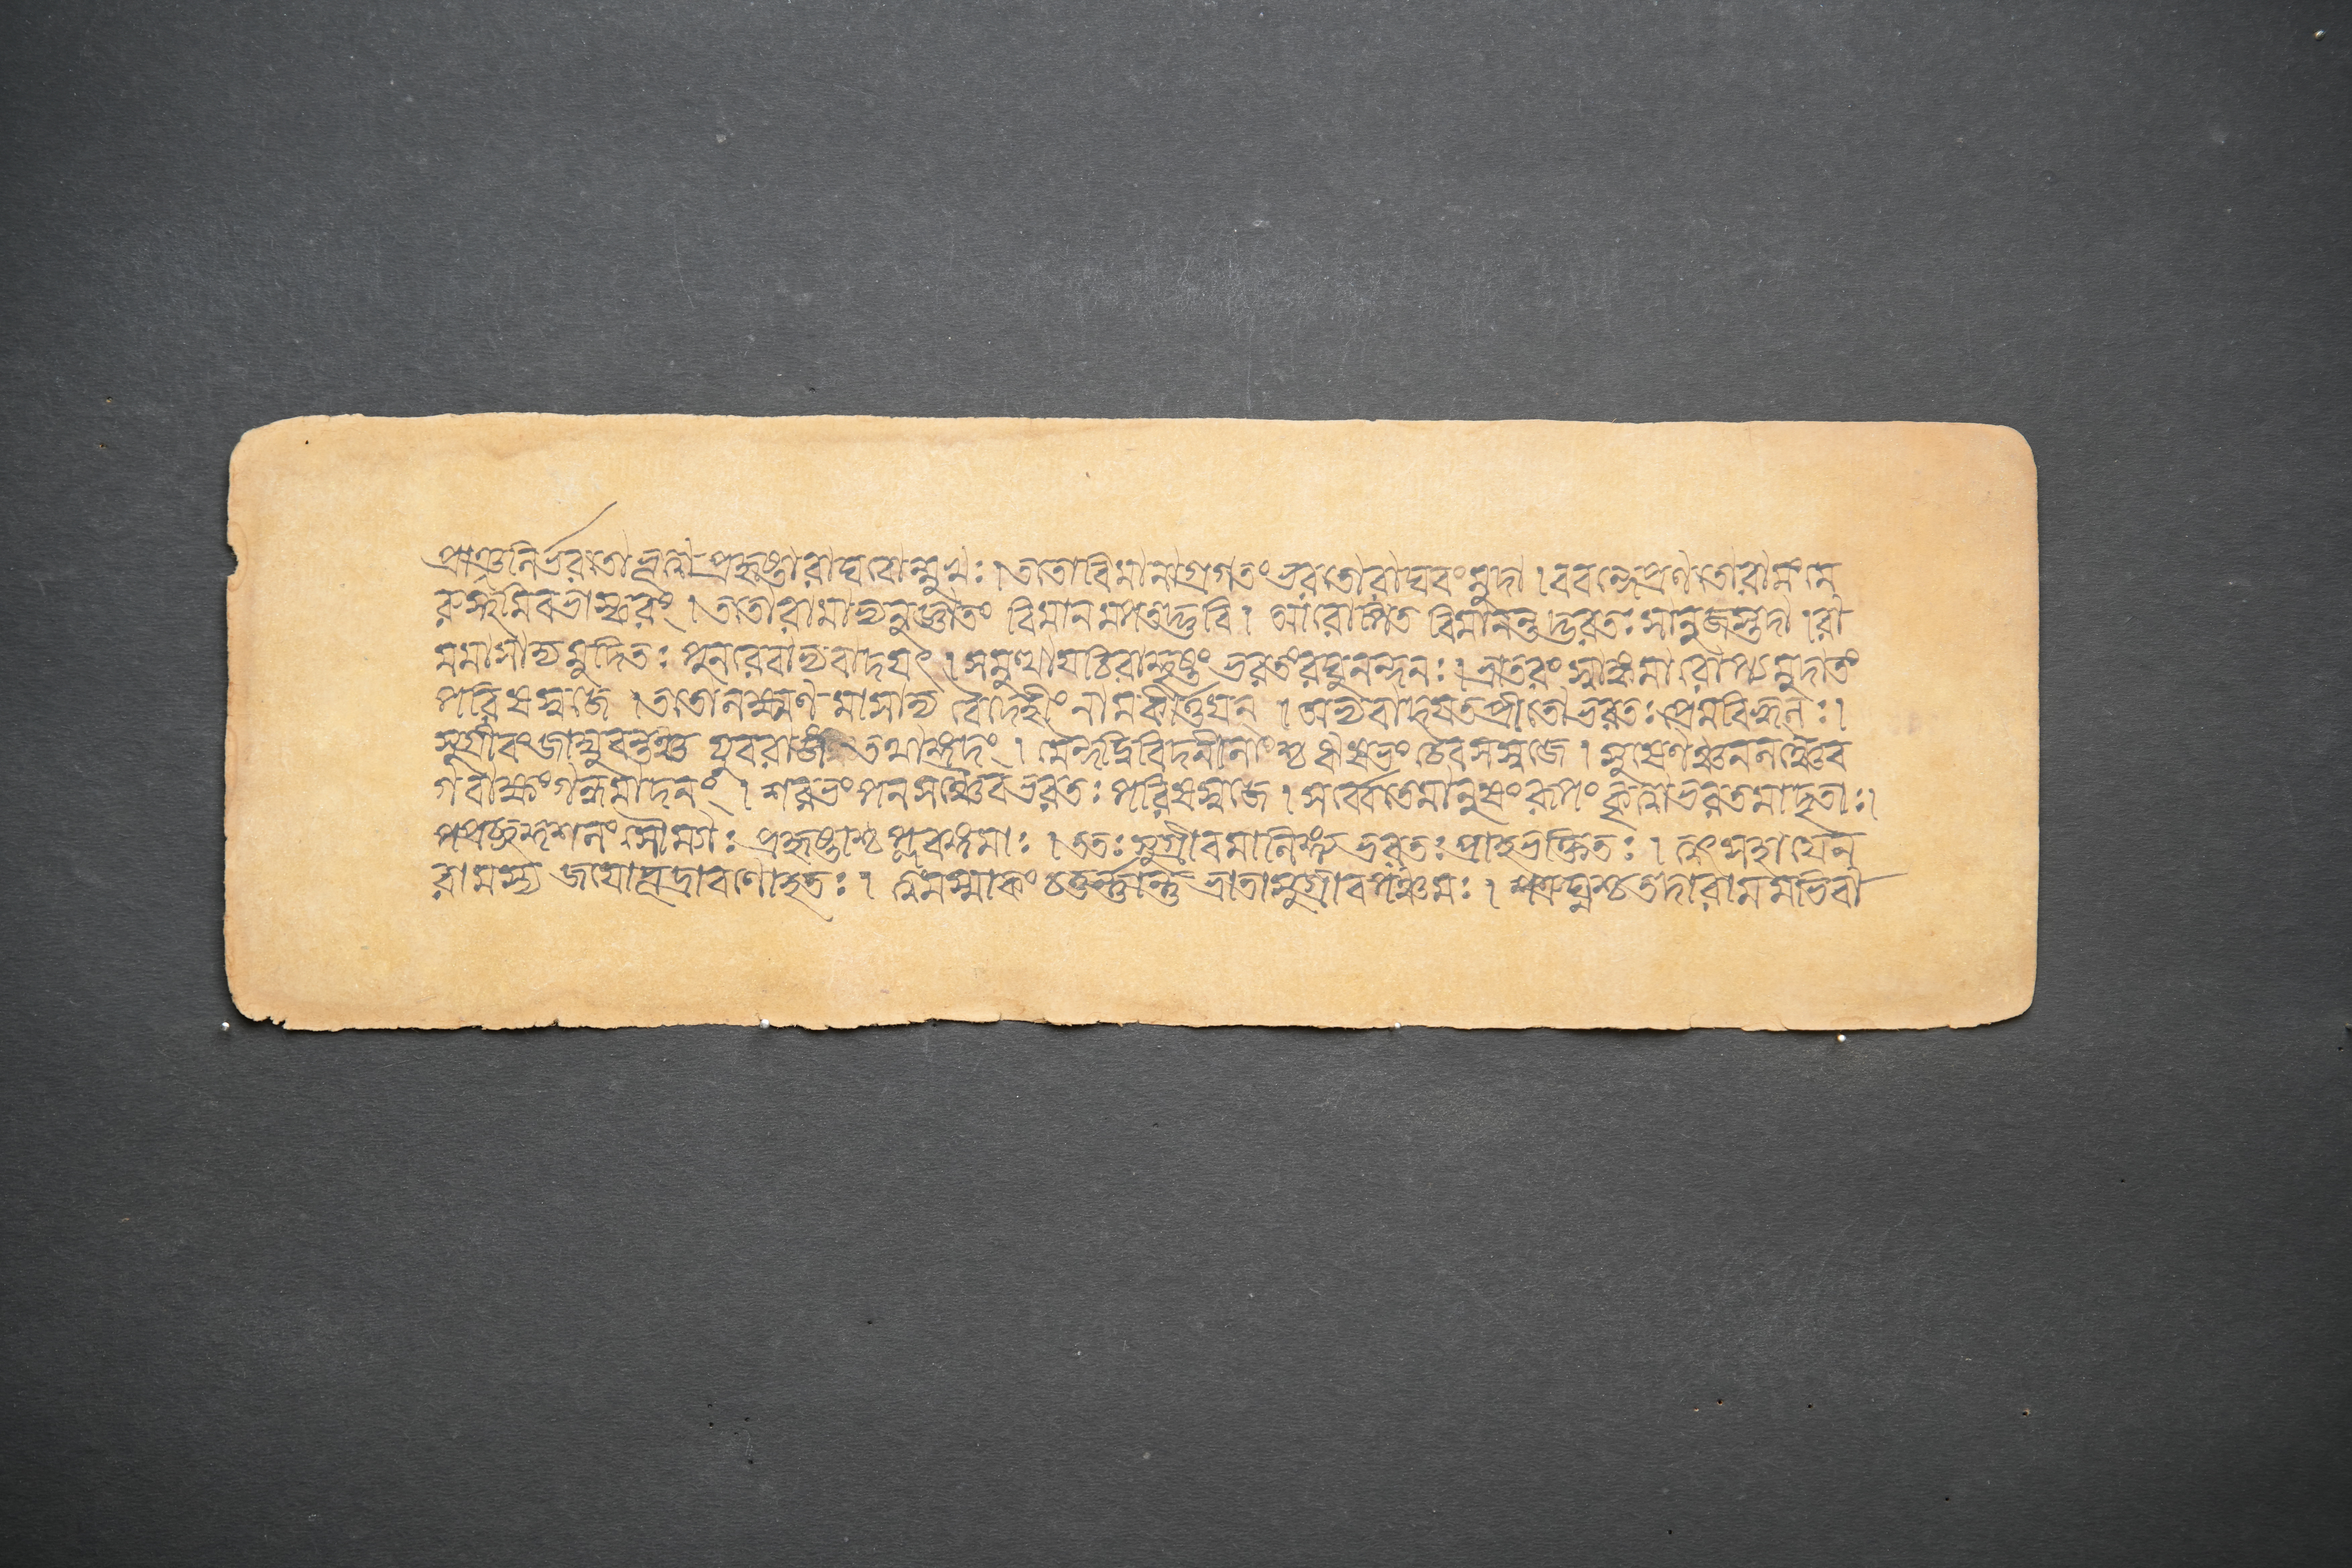 প্রাঞ্জলির্ভরতো ভূত্বা প্রহৃষ্টো রাঘবোন্মুখঃ । ততো বিমানাগ্রগতং ভরতো রাঘবং মুদা । ববন্দে প্রণতো রামং মে
রুস্থমিব ভাস্করং । ততো রামাভ্যনুজ্ঞাতং বিমানমপতদ্ভুবি । আরোপিতো বিমানন্তদ্ভরতঃ সানুজস্তদা । রা
মমাসাদ্য মুদিতঃ পুনরেবাভ্যবাদয়ৎ । সমুত্থাপ্য চিরাদ্দৃষ্টং ভরতং রঘুনন্দনঃ । ভ্রাতরং স্বাঙ্কমারোপ্য মুদা তং
পরিষস্বজে । ততো লক্ষ্মণমাসাদ্য বৈদেহীং নাম কীর্ত্তয়ন্ । অভ্যবাদয়ত প্রীতো ভরতঃ প্রেমবিহ্বলঃ ।
সুগ্রীবং জাম্বুবন্তঞ্চ যুবরাজং তথাঙ্গদং । মৈন্দদ্বিবিদনীলাংশ্চ ঋষভং চৈব সস্বজে । সুষেণঞ্চ নলঞ্চৈব
গবাক্ষং গন্ধমাদনং । শরভং পনসঞ্চৈব ভরতঃ পরিষস্বজে । সর্ব্বে তে মানুষং রূপং কৃত্বা ভরতমাদৃতাঃ ।
পপ্রচ্ছুঃ কুশলং সৌম্যাঃ প্রহৃষ্টাশ্চ প্লবঙ্গমাঃ । ততঃ সুগ্রীবমালিঙ্গ্য ভরতঃ প্রাহ ভক্তিতঃ । ত্বৎসহায়েন
রামস্য জয়োভূদ্রাবণো হতঃ । ত্বমস্মাকং চতুর্ণান্তু ভ্রাতা সুগ্রীব পঞ্চমঃ । শত্রুঘ্নশ্চ তদা রামমভিবা